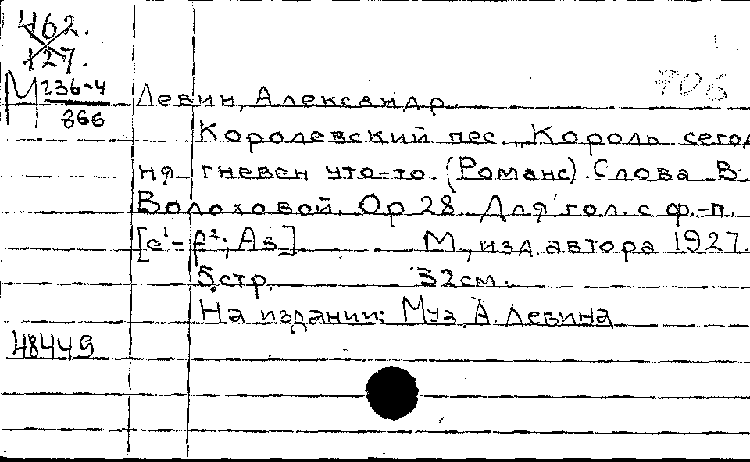 462.
127.
М 236-4
866
706
Левин, Александр
Королевский пес. Король сегод
ня гневен что-то. (Романс). Слова В.
Волоховой. Ор 28. Для гол. с ф.-п.
[c¹-f²; As] М., изд. автора 1927.
5 стр. 32 см.
На издании: Муз. А. Левина
48449